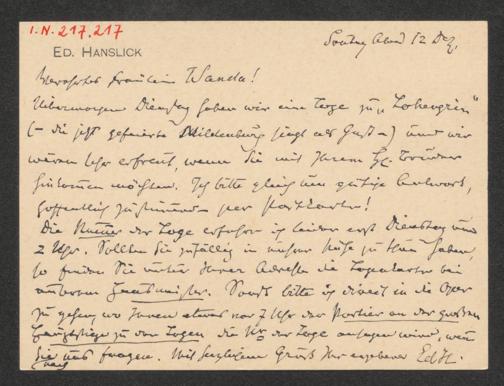 I.N. 217.217
ED. HANSLICK
Sontag Abend 12 Dez.
Verehrtes Fräulein Wanda!
Übermorgen Dienstag haben wir eine Loge zu „Lohengrin"
(– die jetzt gefeierte Mildenburg singt als Gast –) und wir
wären sehr erfreut, wenn Sie mit Ihrem H. Bruder
hinkommen möchten. Ich bitte gleich um gütige Antwort,
hoffentlich zustimmend per Postkarte!
Die Numer der Loge erfahre ich leider erst Dienstag um
2 Uhr. Sollten Sie zufällig in unsrer Nähe zu thun haben,
so finden Sie unter Ihrer Adresse die Logenkarte bei
unserem Hausmeister. Sonst bitte ich direct in die Oper
zu gehen wo Ihnen etwas vor 7 Uhr der Portier an der großen
Hauptstiege zu den Logen die No der Loge ansagen wird, wenn
Sie nach uns fragen. Mit herzlichem Gruß Ihr ergebener EdH.